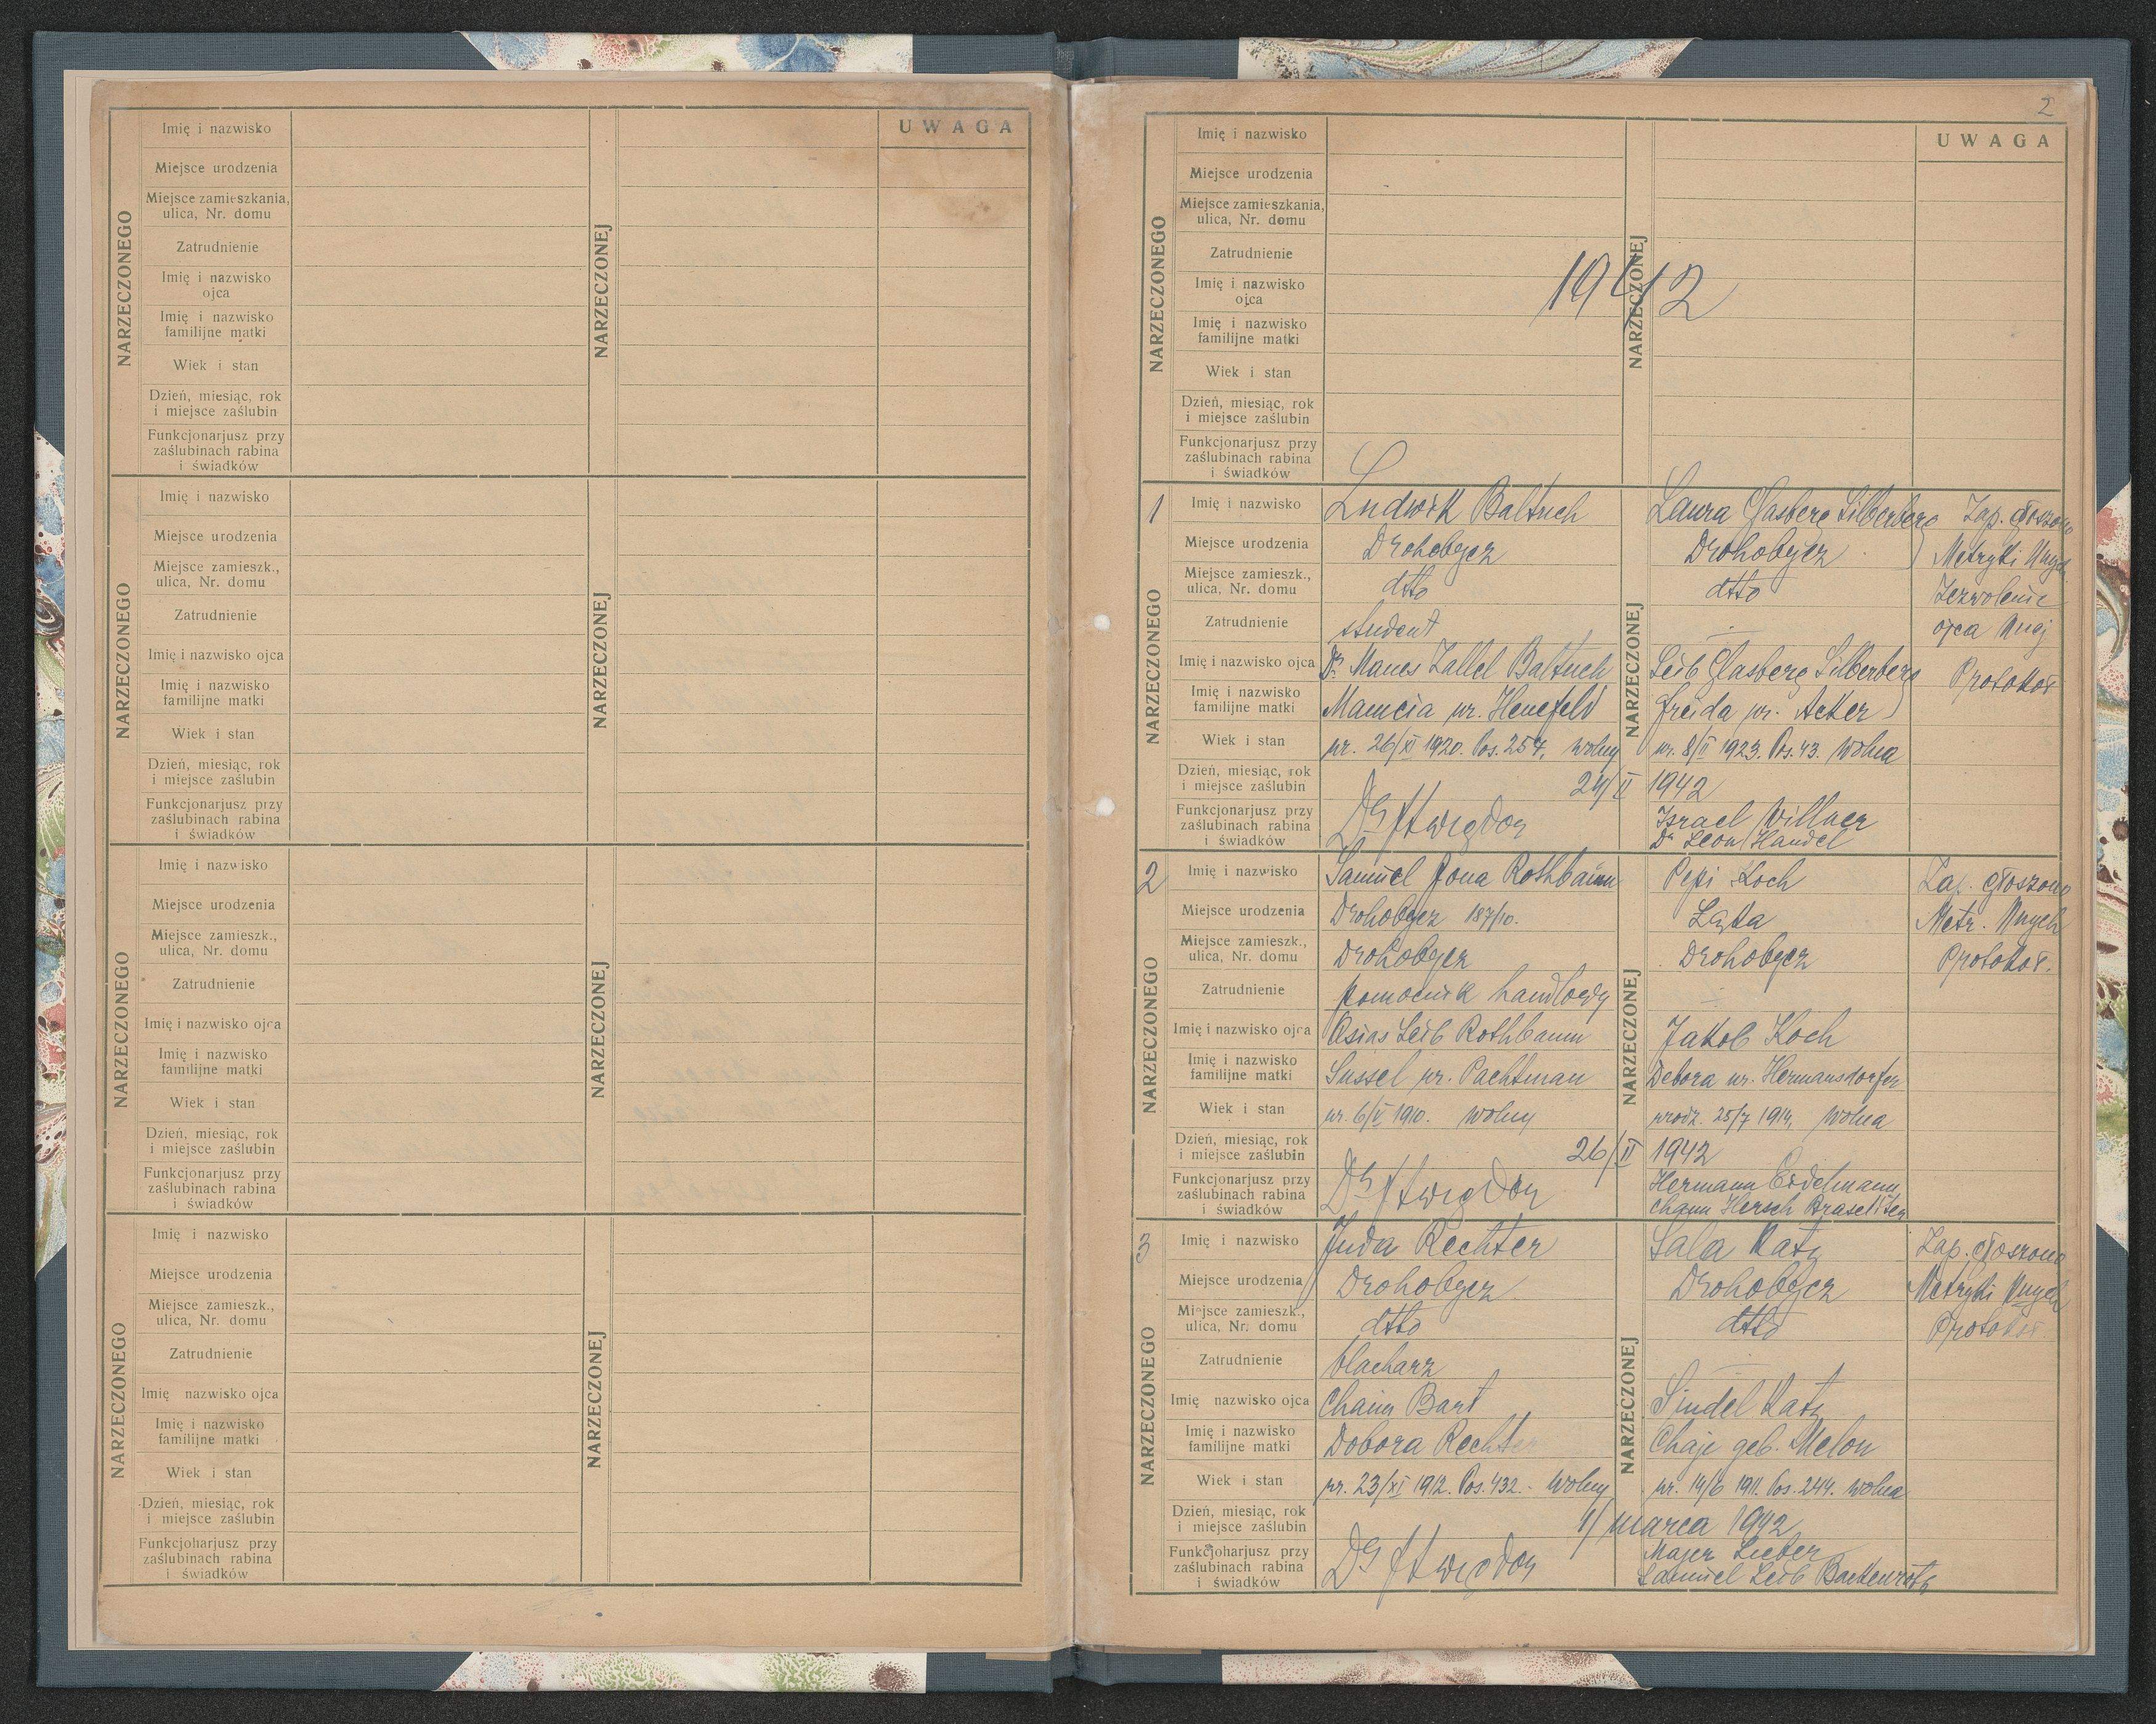 UWAGA
NARZECZONEGO
Imię i nazwisko
Miejsce urodzenia
Miejsce zamieszkania,
ulica, Nr. domu
Zatrudnienie
Imię i nazwisko
ojca
Imię i nazwisko
familijne matki
Wiek i stan
Dzień, miesiąc, rok
i miejsce zaślubin
Funkcjonarjusz przy
zaślubinach rabina
i świadków
NARZECZONEJ
NARZECZONEGO
Imię i nazwisko
Miejsce urodzenia
Miejsce zamieszk.,
ulica, Nr. domu
Zatrudnienie
Imię i nazwisko ojca
Imię i nazwisko
familijne matki
Wiek i stan
Dzień, miesiąc, rok
i miejsce zaślubin
Funkcjonarjusz przy
zaślubinach rabina
i świadków
NARZECZONEJ
NARZECZONEGO
Imię i nazwisko
Miejsce urodzenia
Miejsce zamieszk.,
ulica, Nr. domu
Zatrudnienie
Imię i nazwisko ojca
Imię i nazwisko
familijne matki
Wiek i stan
Dzień, miesiąc, rok
i miejsce zaślubin
Funkcjonarjusz przy
zaślubinach rabina
i świadków
NARZECZONEJ
NARZECZONEGO
Imię i nazwisko
Miejsce urodzenia
Miejsce zamieszk.,
ulica, Nr. domu
Zatrudnienie
Imię nazwisko ojca
Imię i nazwisko
familijne matki
Wiek i stan
Dzień, miesiąc, rok
i miejsce zaślubin
Funkcjoharjusz przy
zaślubinach rabina
i świadków
NARZECZONEJ
2
UWAGA
NARZECZONEGO
Imię i nazwisko
Miejsce urodzenia
Miejsce zamieszkania,
ulica, Nr. domu
Zatrudnienie
Imię i nazwisko
ojca
Imię i nazwisko
familijne matki
Wiek i stan
Dzień, miesiąc, rok
i miejsce zaślubin
Funkcjonarjusz przy
zaślubinach rabina
i świadków
NARZECZONEJ
1942
1
NARZECZONEGO
NARZECZONEJ
Imię i nazwisko Ludwik Baltuch Laura Glasberg Silberberg Zap. głoszono
Miejsce urodzenia Drohobycz Drohobycz Metryki
Miejsce zamieszk.,
ulica, Nr. domu dtto dtto Zezwolenie
Zatrudnienie student ojca
Imię i nazwisko ojca Dr. Manes Zallel Baltuch Leib Glasberg Silberberg Protokoł
Imię i nazwisko
familijne matki Mamcia ur. Henefeld Freida ur. Acker
Wiek i stan ur. 26/XI 1920. Pos. 254. wolny ur. 8/II 1923. Ps. 43. wolna
Dzień, miesiąc, rok
i miejsce zaślubin 24/II 1942
Funkcjonarjusz przy
zaślubinach rabina
i świadków Dr Awigdor Israel Willner
Dr Leon Handel
2
NARZECZONEGO
NARZECZONEJ
Imię i nazwisko Samuel Jona Rothbaum Pepi Koch Zap. głoszono
Miejsce urodzenia Drohobycz 187/10. Łąka Metr.
Miejsce zamieszk.,
ulica, Nr. domu Drohobycz Drohobycz Protokoł.
Zatrudnienie pomocnik handlowy
Imię i nazwisko ojca Osias Leib Rothbaum Jakob Koch
Imię i nazwisko
familijne matki Sussel ur. Pachtman Debora ur. Hermansdorfer
Wiek i stan ur. 6/V 1910. wolny urodz. 25/7 1914, wolna
Dzień, miesiąc, rok
i miejsce zaślubin 26/II 1942
Funkcjonarjusz przy
zaślubinach rabina
i świadków Dr Awigdor Hermann
Chaim Hersch
3
NARZECZONEGO
NARZECZONEJ
Imię i nazwisko Juda Rechter Sala Katz Zap. głoszono
Miejsce urodzenia Drohobycz Drohobycz Metryki
Miejsce zamieszk.,
ulica, Nr. domu dtto dtto Protokoł.
Zatrudnienie blacharz
Imię nazwisko ojca Chaim Bart Sindel Katz
Imię i nazwisko
familijne matki Dobora Rechter Chaje geb. Melon
Wiek i stan ur. 23/XI 1912. Pos. 432. wolny ur. 14/6 1911. Pos. 244. wolna
Dzień, miesiąc, rok
i miejsce zaślubin 1/ marca 1942
Funkcjoharjusz przy
zaślubinach rabina
i świadków Dr Awigdor Majer Lieber
Samuel Leib Backenroth